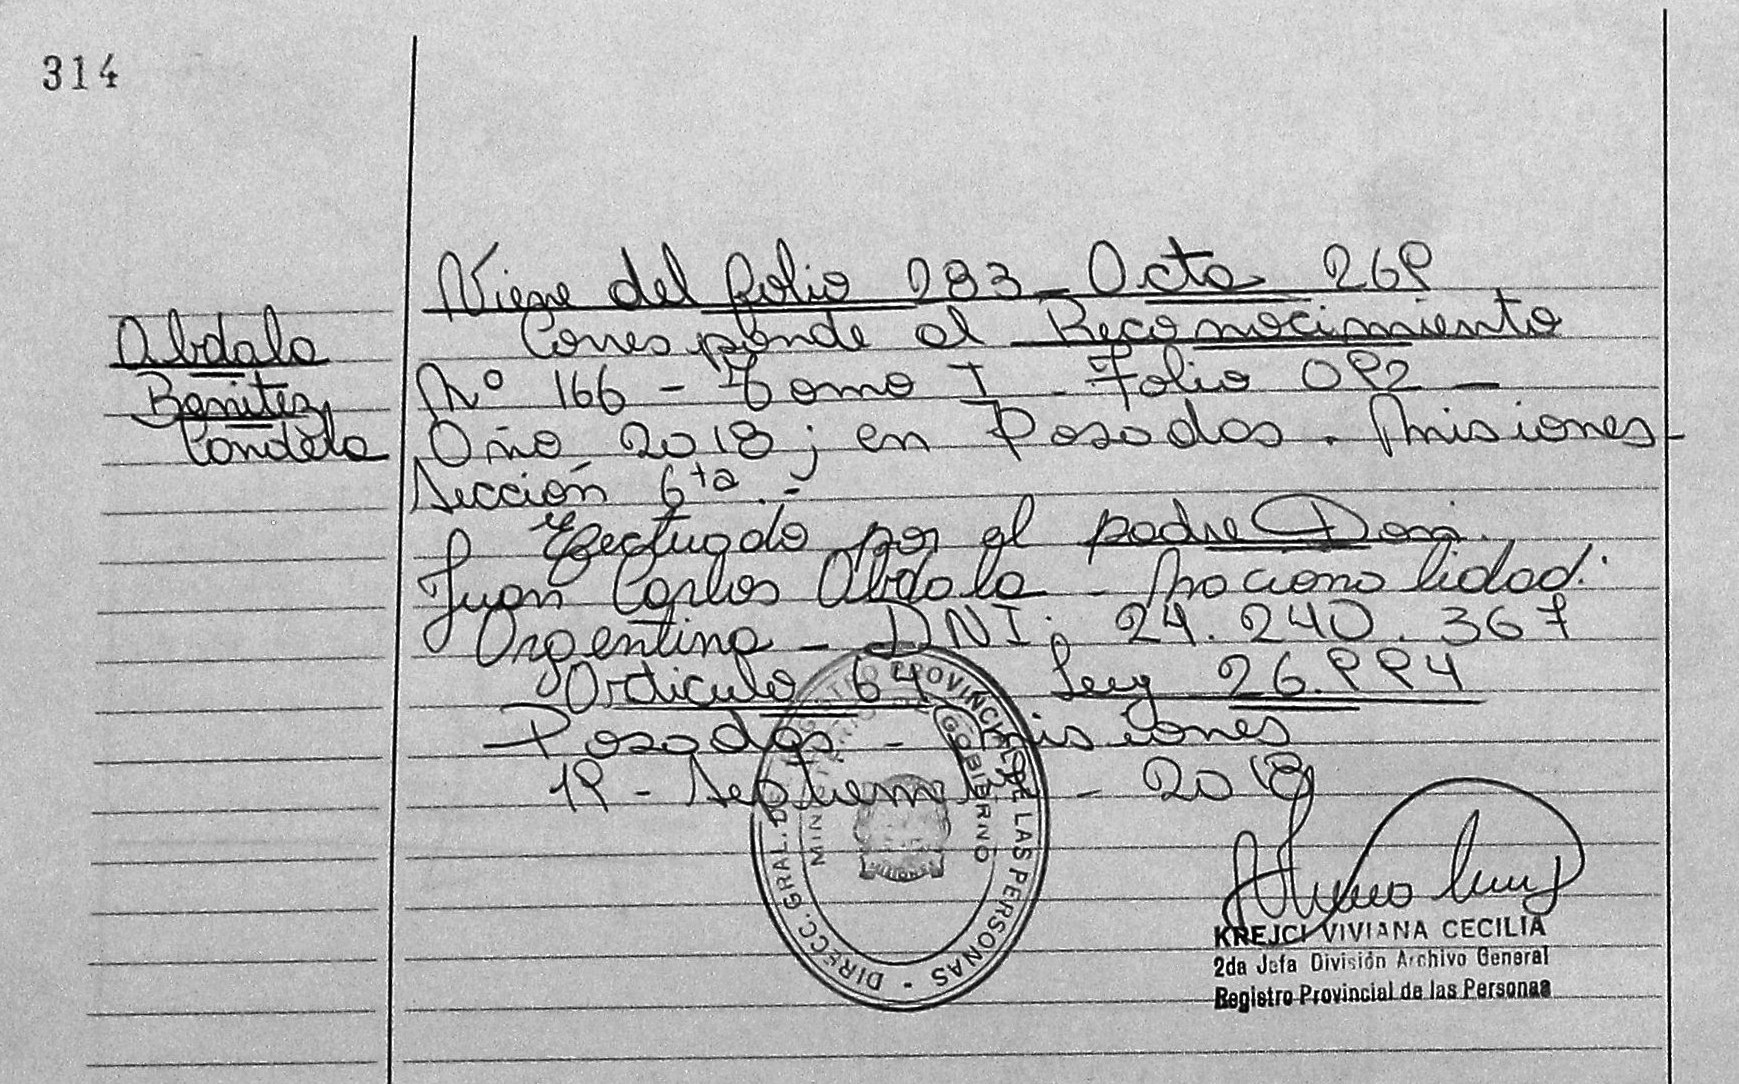 314
Viene del folio 283 - Acta 269
Abdala
Corresponde al Reconocimiento
Benitez
Nº 166 - Tomo I - Folio 092 -
Candela
Año 2018; en Posadas - Misiones -
Sección 6ta.-
Efectuado por el padre Don:
Juan Carlos Abdala - Nacionalidad:
Argentina - DNI: 24.240.367
Articulo 64 Ley 26.994
Posadas - Misiones
19 - Septiembre - 2018
DIRECC. GRAL. DE REGISTRO PROVINCIAL DE LAS PERSONAS
GOBIERNO
MISIONES
KREJCI VIVIANA CECILIA
2da Jefa División Archivo General
Registro Provincial de las Personas